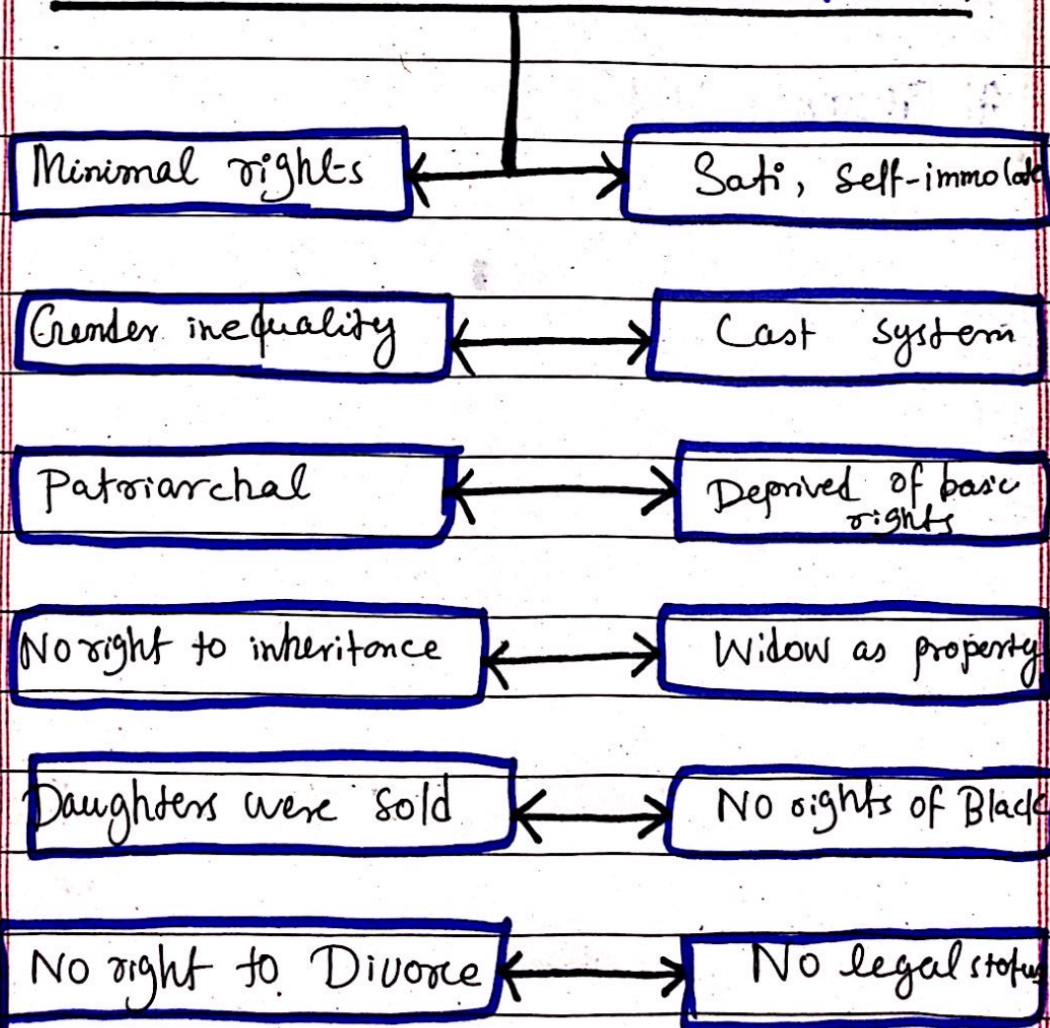 Minimal rights
Sati, Self-immolate
Gender inequality
Cast system
Patriarchal
Deprived of basic
rights
No right to inheritance
Widow as property
Daughters were sold
No rights of Black
No right to Divorce
No legal status